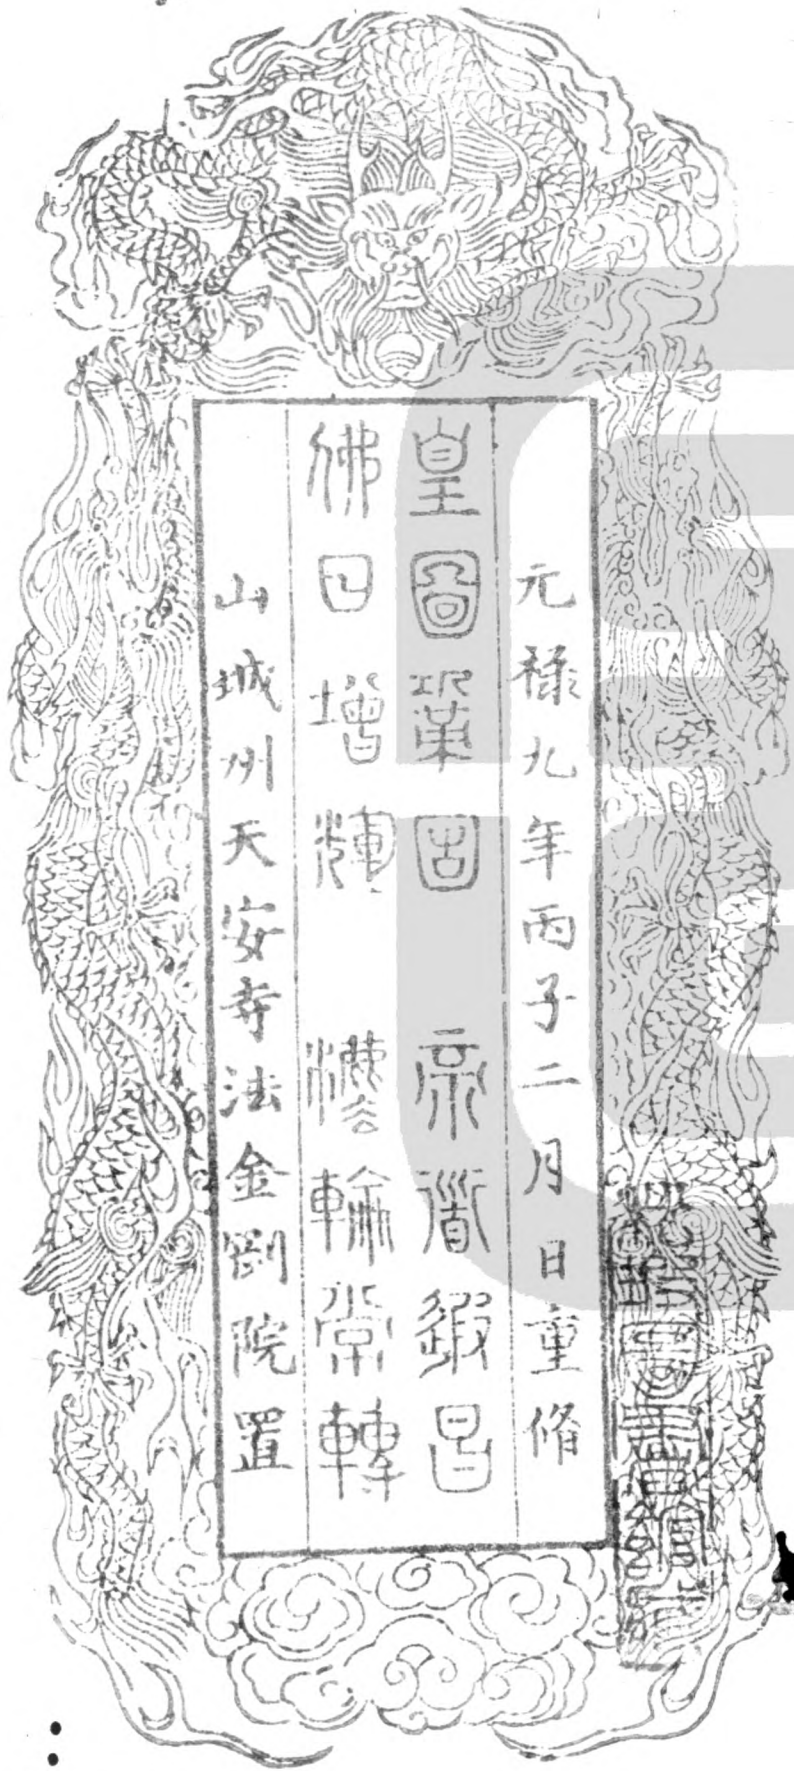 元禄九年丙子二月　日重脩
皇圖鞏固　帝道遐昌
佛日增輝　法輪常轉
山城州天安寺法金劉院置